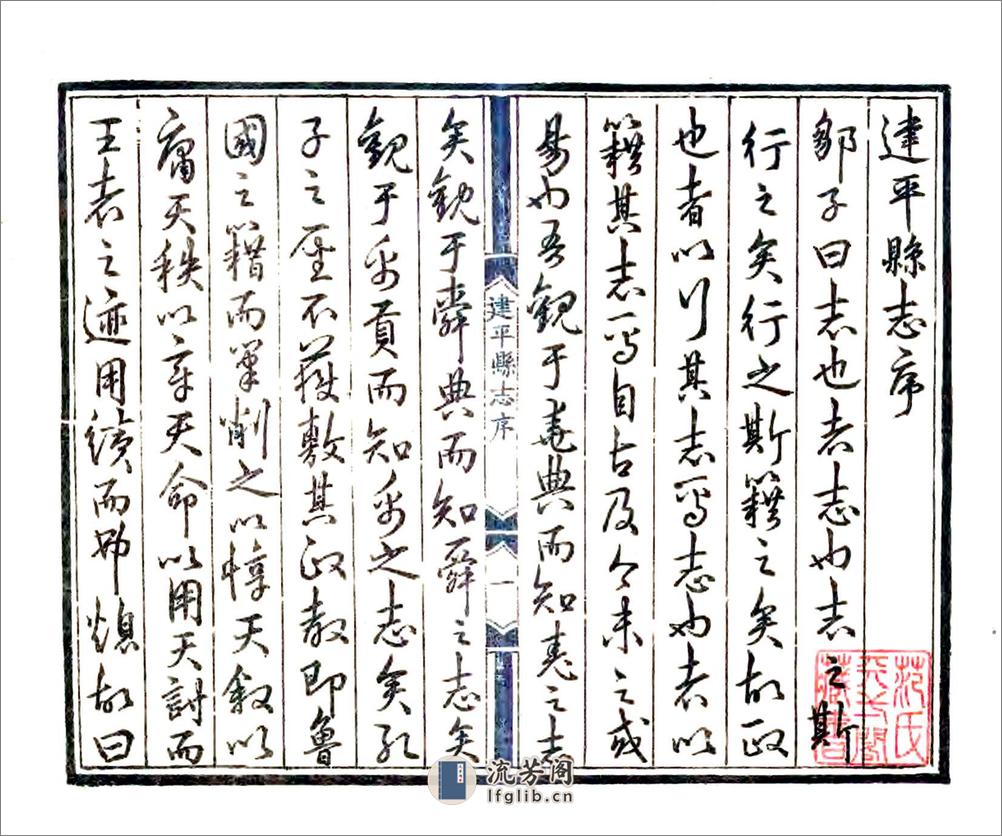 建平縣志序
鄒子曰志也者志也志之斯
行之矣行之斯籍之矣故政
也者以行其志焉志也者以
籍其志焉自古及今未之或
易也吾觀于堯典而知堯之志
矣觀于舜典而知舜之志矣
觀于禹貢而知禹之志矣孔
子之聖不獲敷其政教即魯
國之籍而筆削之以惇天叙以
庸天秩以章天命以用天討而
王者之迹用續而弗熄故曰
建平縣志序
一
范氏天一閣藏書
流芳阁
lfglib.cn